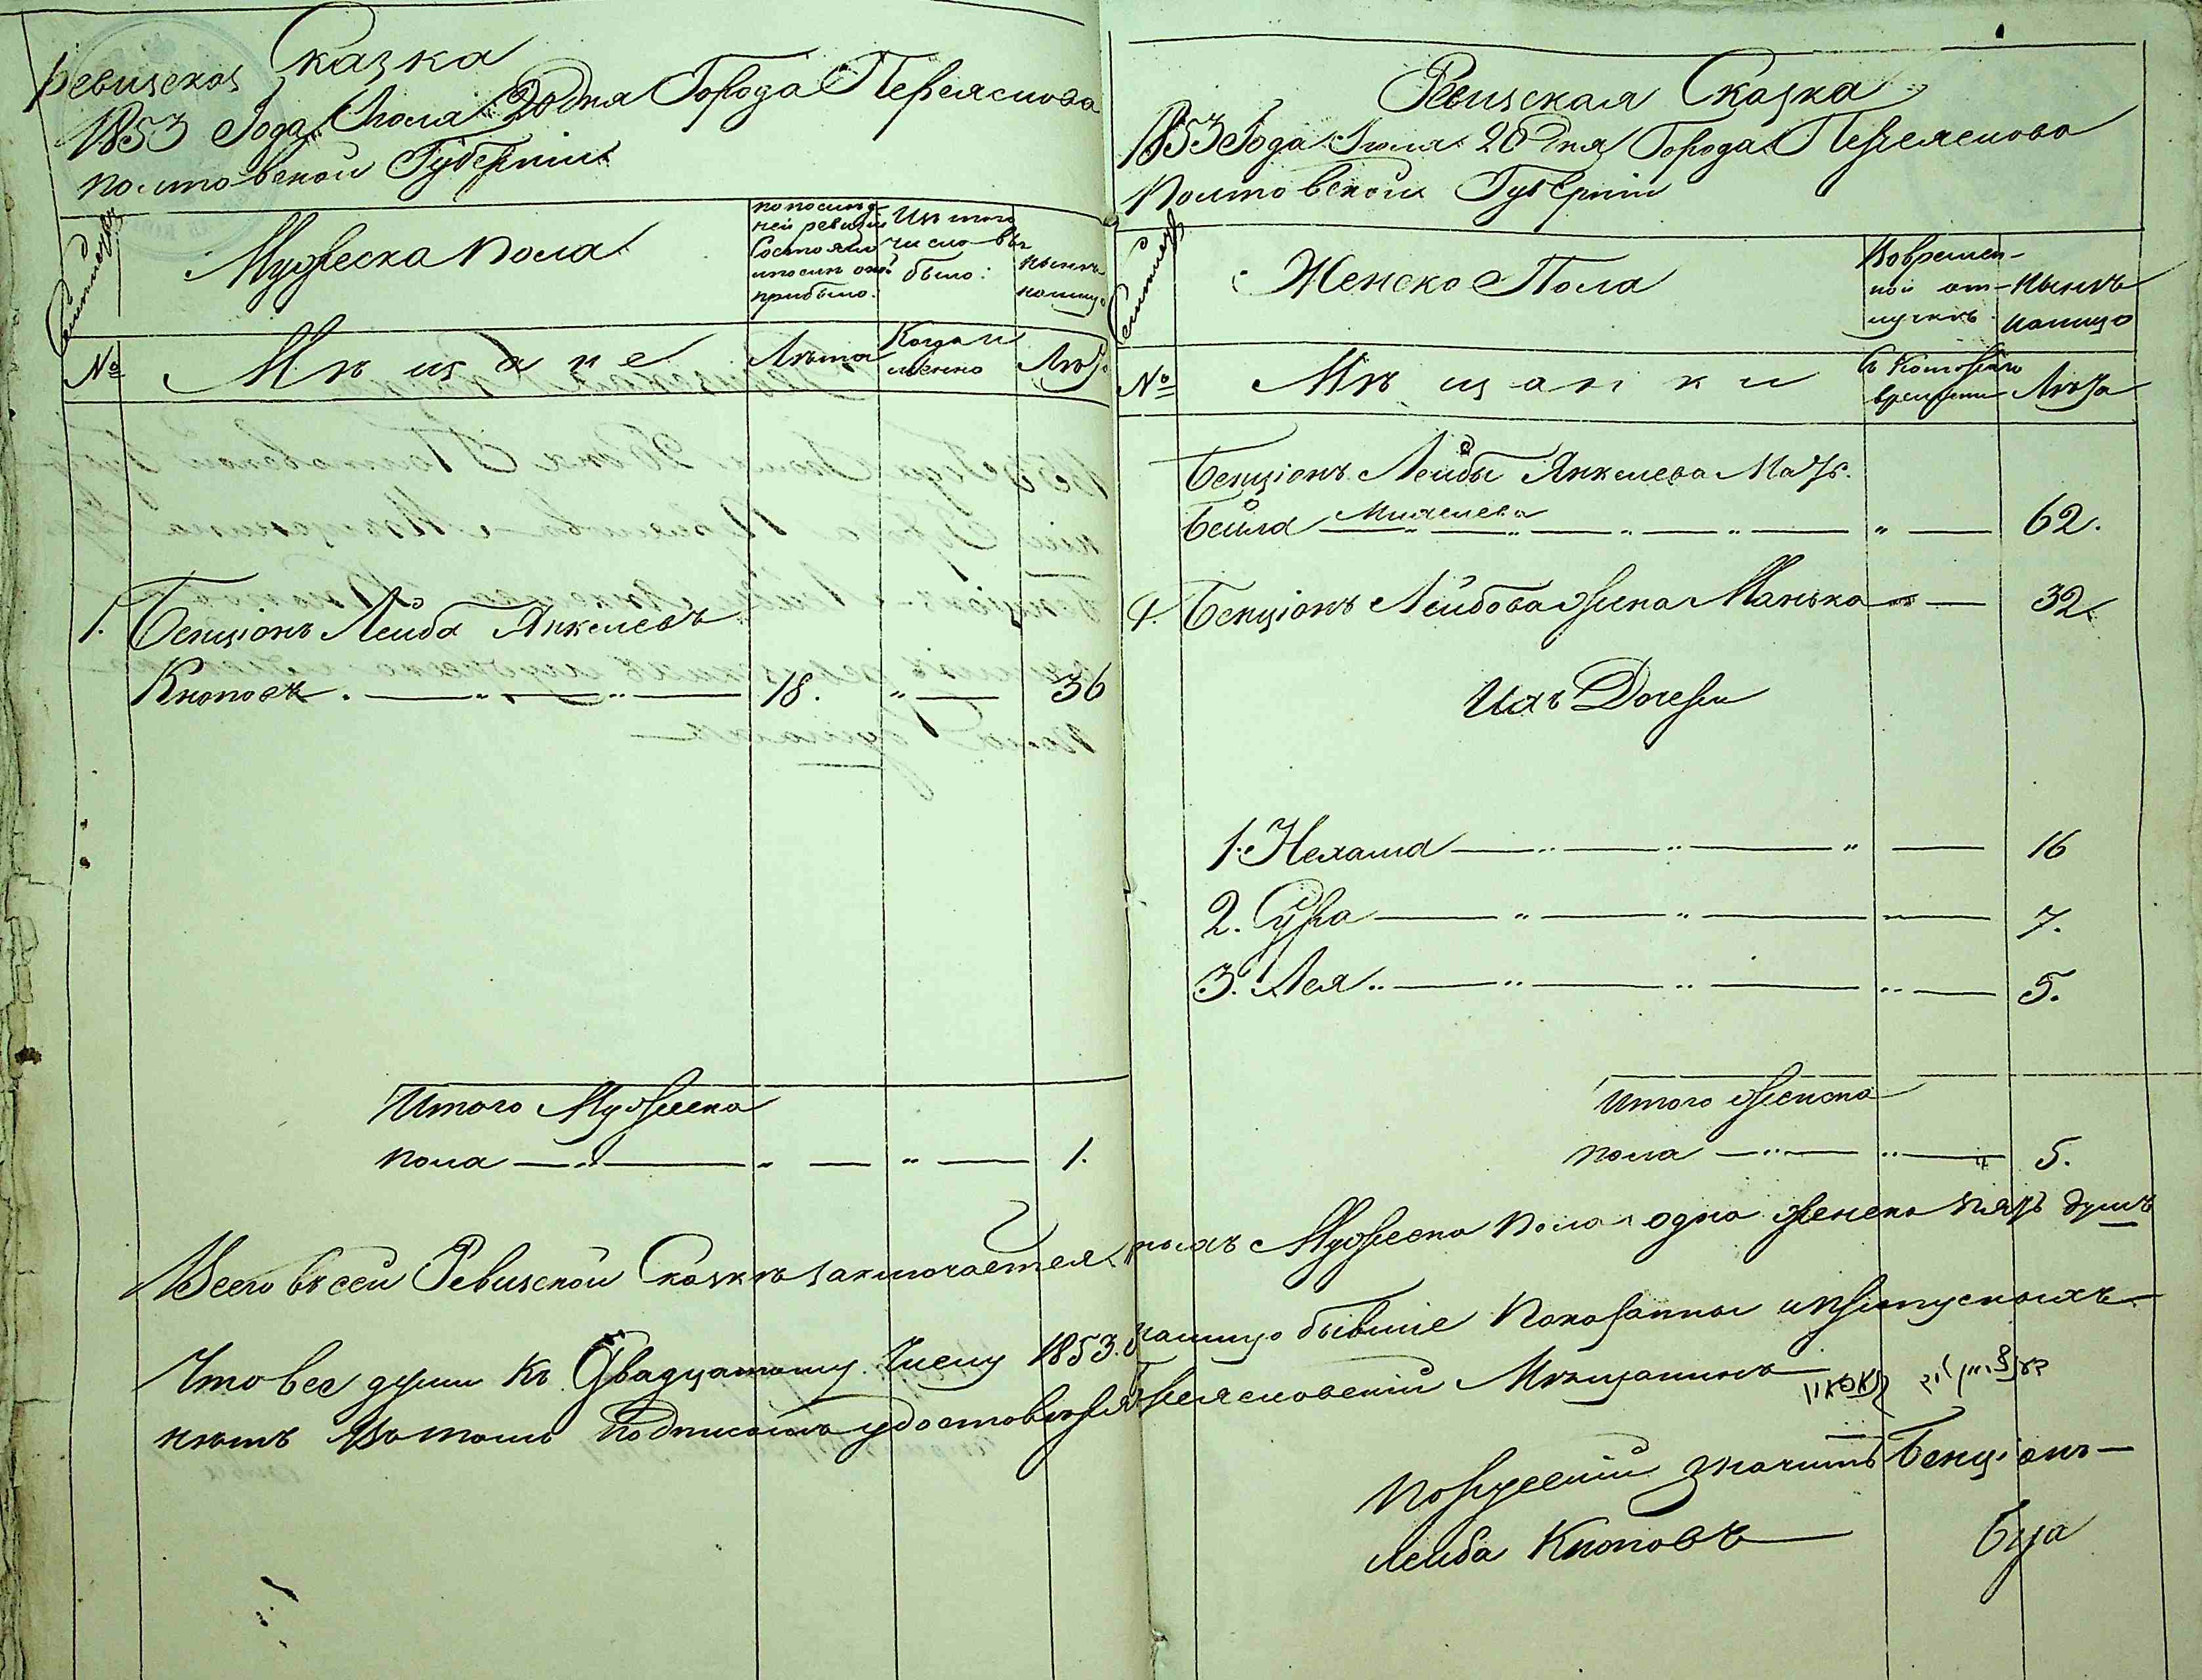 Ревизская Сказка
1853 Года Июля 20 дня Города Переяслова
Полтовской Губернии
Семействъ
Мужеска пола
по послед-
ней ревизии
Состояло
и после оной
прибыло.
Изъ того
число вы
было:
ныне
налицо
№
Мѣщане
Лѣта
Когда и
менно
Лѣта
1. Бенціонъ Лейба Янкелевъ
Кноповъ 18. " 36
Итого Мужеска
пола " " 1.
Ревизская Сказка
1853 Года Июля 20 дня Города Переяслова
Полтовской Губернии
Семействъ
Женско Пола
Во времен-
ной от-
лучкѣ
ныне
налицо
№
Мѣщанки
Съ которого
времени
Лѣта
Бенціонъ Лейбы Янкелева Мать.
Бейла " " " " " 62.
1. Бенціонъ Лейбова жена Манька 32.
Ихъ Дочери
1. Нехама " " " 16
2. Сура " " " 7.
3. Лея " " " " 5.
Итого женска
пола " " " 5.
Всего въ сей Ревизской Сказкѣ заключается налицо Мужеска Пола одна женска пять душъ
Что все души къ Двадцатому Числу 1853. налицо бывшие Показанны и пропускныхъ
нѣтъ въ томъ подписомъ удостоверяю Переясловский Мѣщанинъ
По русский значитъ Бенціонъ
Лейба Кноповъ